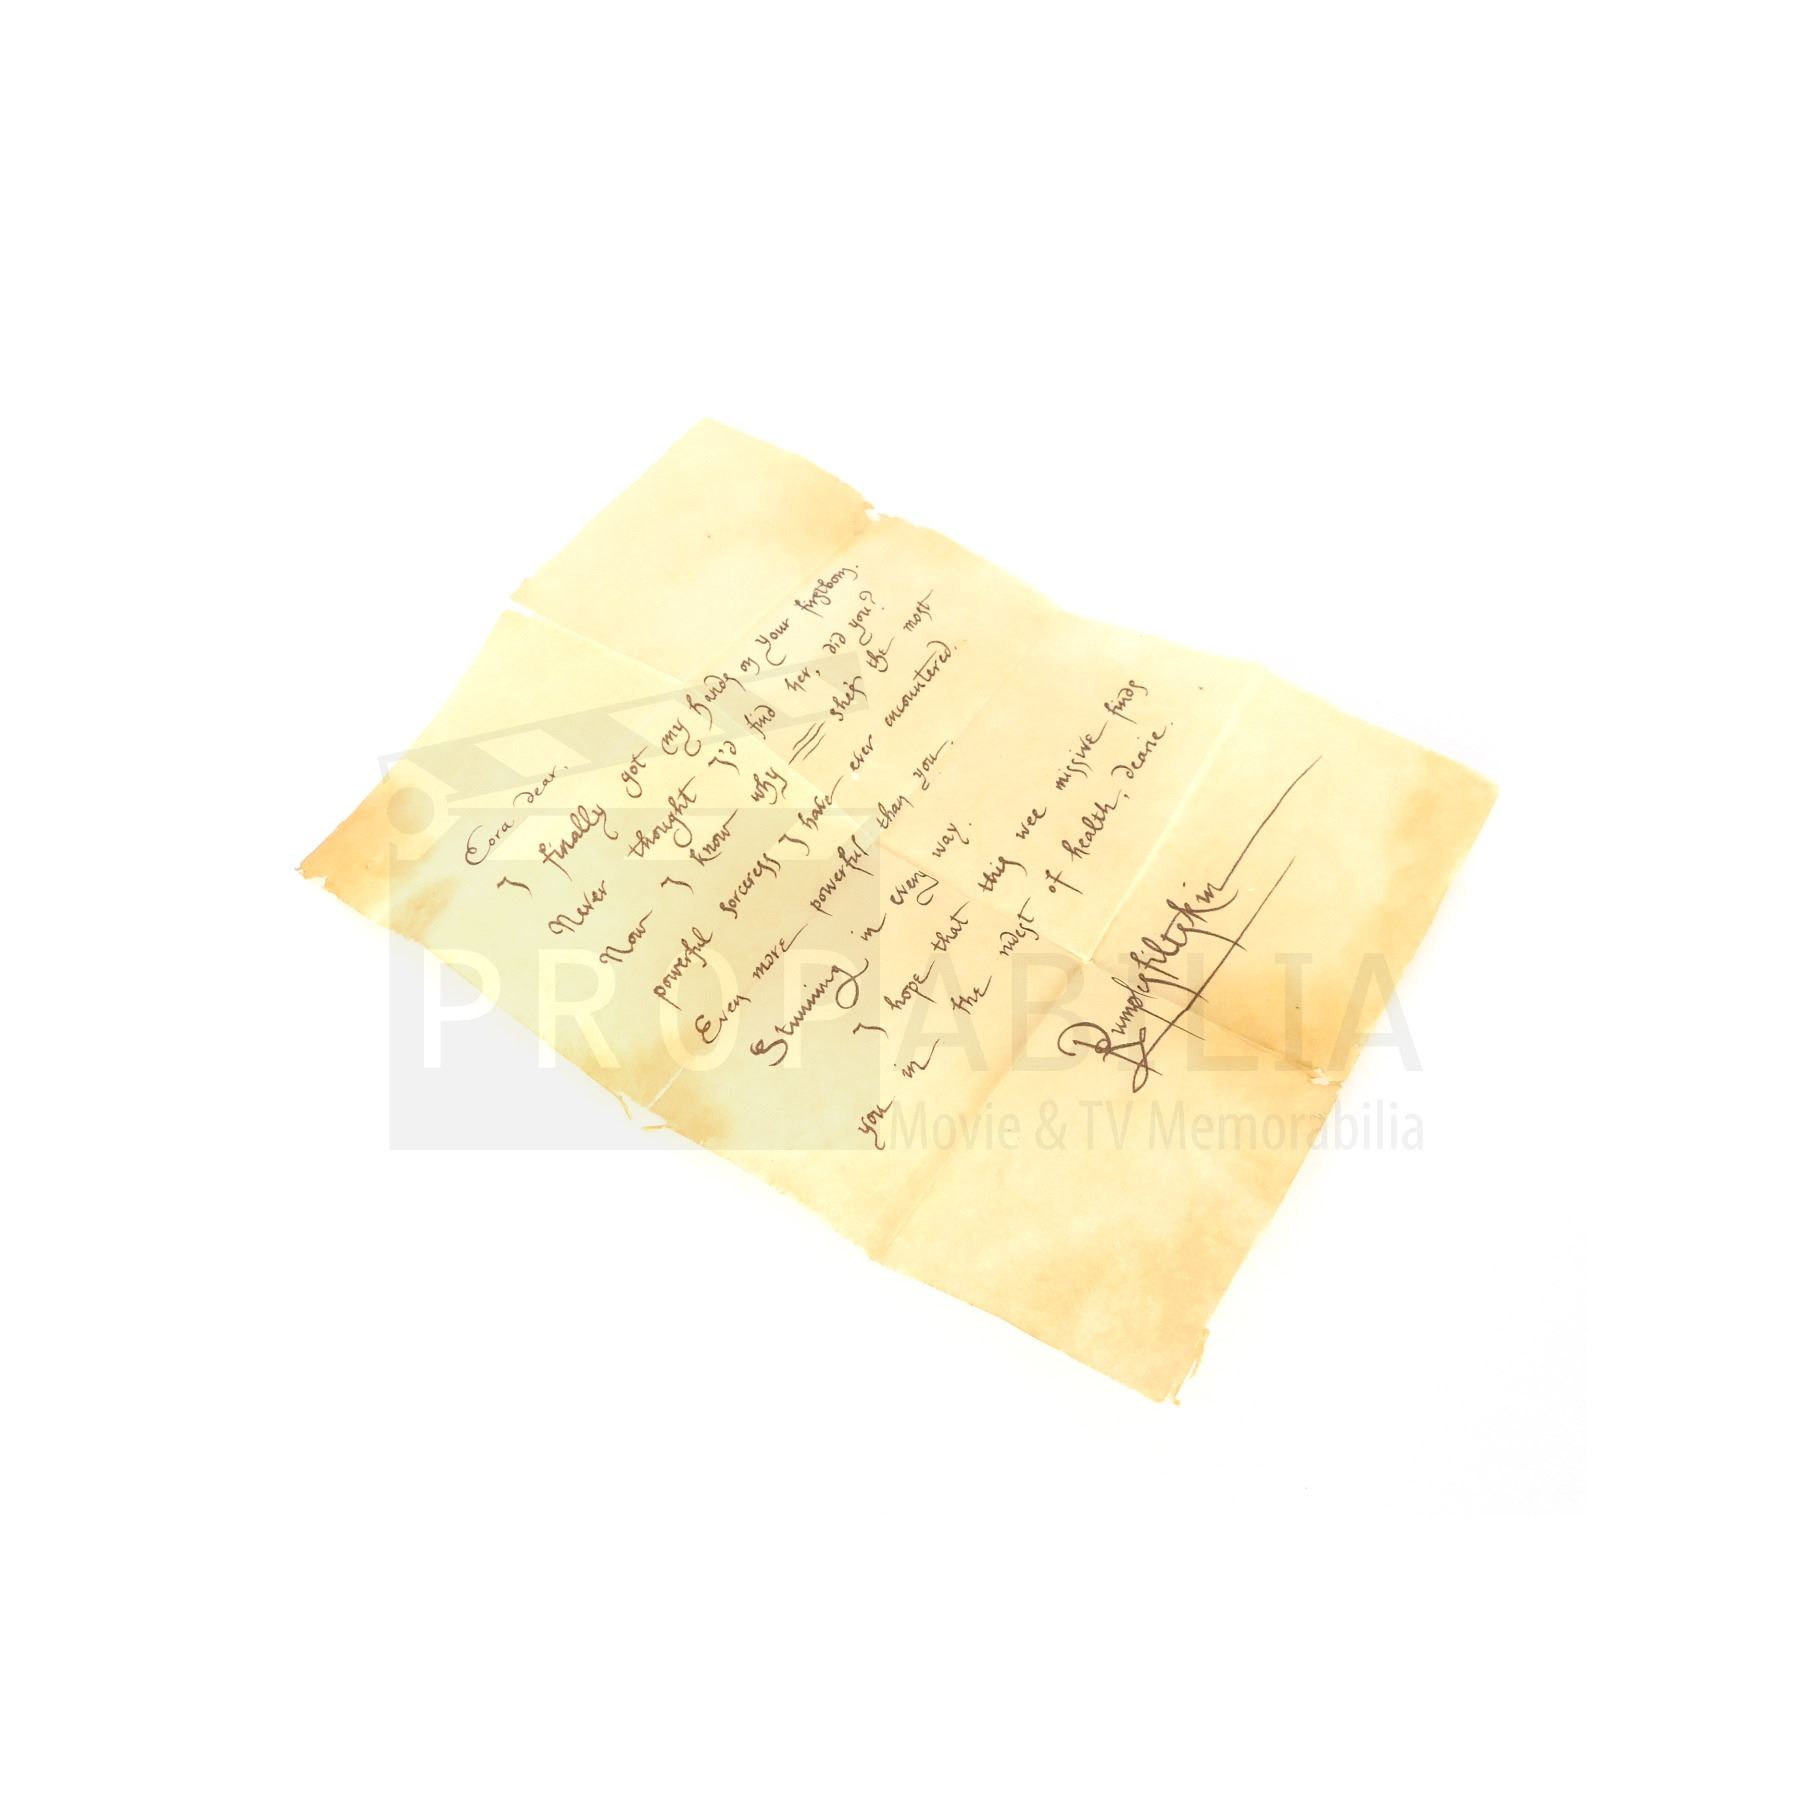 Cora dear,
I finally got my hands on your firstborn.
Never thought I'd find her, did you?
Now I know why she's the most
powerful sorceress I have ever encountered.
Even more powerful than you.
Stunning in every way.
I hope that this wee missive finds
you in the of health, dearie.
Rumplestiltskin
PROPABILIA
Movie & TV Memorabilia